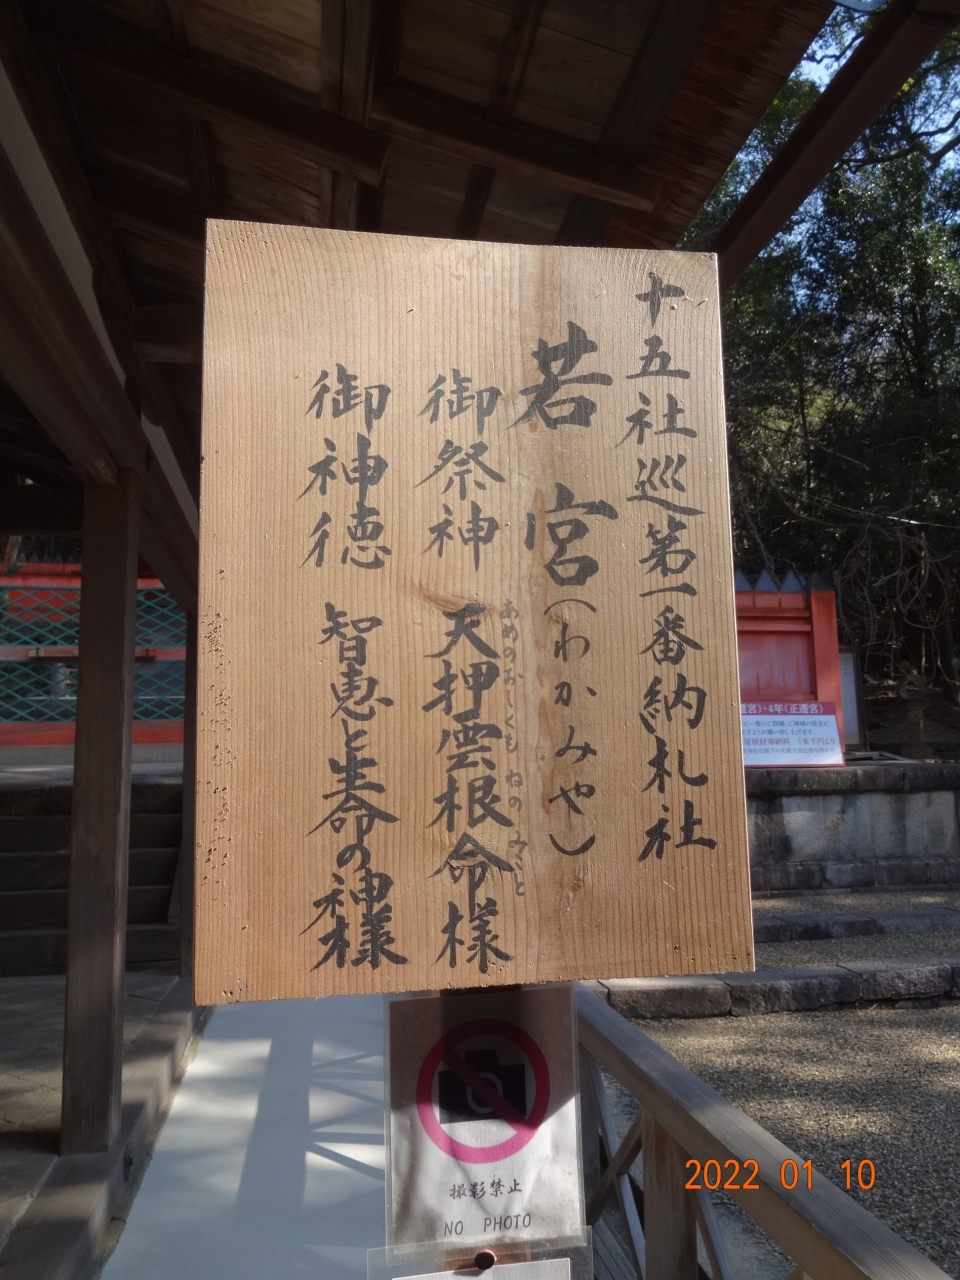 十五社巡第一番納札社
若宮(わかみや)
御祭神 天押雲根命様
あめのおしくも ねの みこと
御神徳 智恵と生命の神様
撮影禁止
NO PHOTO
宮)・4年(正遷宮)
2022 01 10